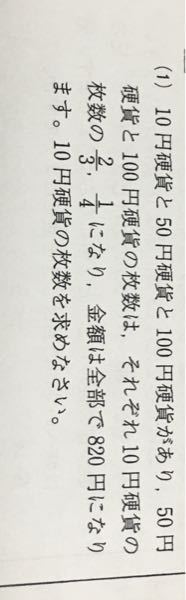 (1) 10円硬貨と50円硬貨と100円硬貨があり，50円
硬貨と100円硬貨の枚数は，それぞれ10円硬貨の
枚数の2/3，1/4になり，金額は全部で820円になり
ます。10円硬貨の枚数を求めなさい。